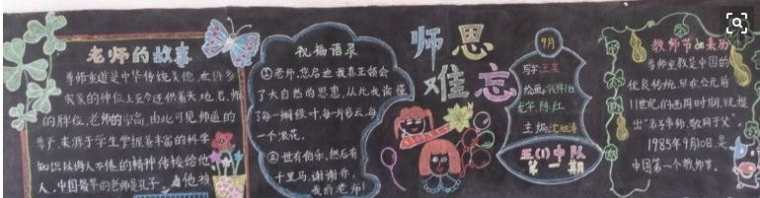 老师的故事
尊师重道是中华传统美德,在许多
家家的神位上至今还供着天地君师
的牌位,老师的崇高,由此可见师道的
尊严,来源于学生掌握着丰富的科学
知识以诲人不倦的精神传授给他
人,中国最早的老师是孔子。
祝福语录
①老师,您启迪我真正领会
了大自然的恩惠,从此我读懂
了每一树绿叶,每片彩云,每
一个浪花。
②世有伯乐,然后有
千里马,谢谢你,
我的老师!
师恩
难忘
9月
写字
绘画
主编
五(1)中队
第一期
教师节
尊师重教是中国的
优良传统,早在公元前
11世纪的西周时期,就提
出"弟子事师,敬同于父"。
1985年9月10日,是
中国第一个教师节。